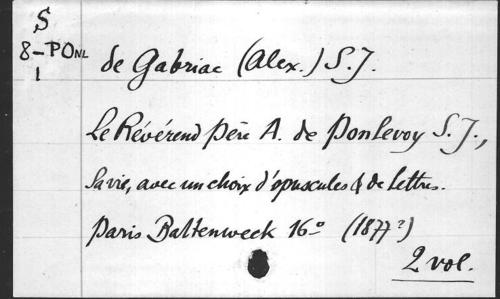 S
8-PONL
1
de Gabriac (Alex.) S.J.
Le Révérend Père A. de Ponlevoy S.J.,
Sa vie, avec un choix d'opuscules & de lettres.
Paris Baltenweck 16° (1877?)
2 vol.